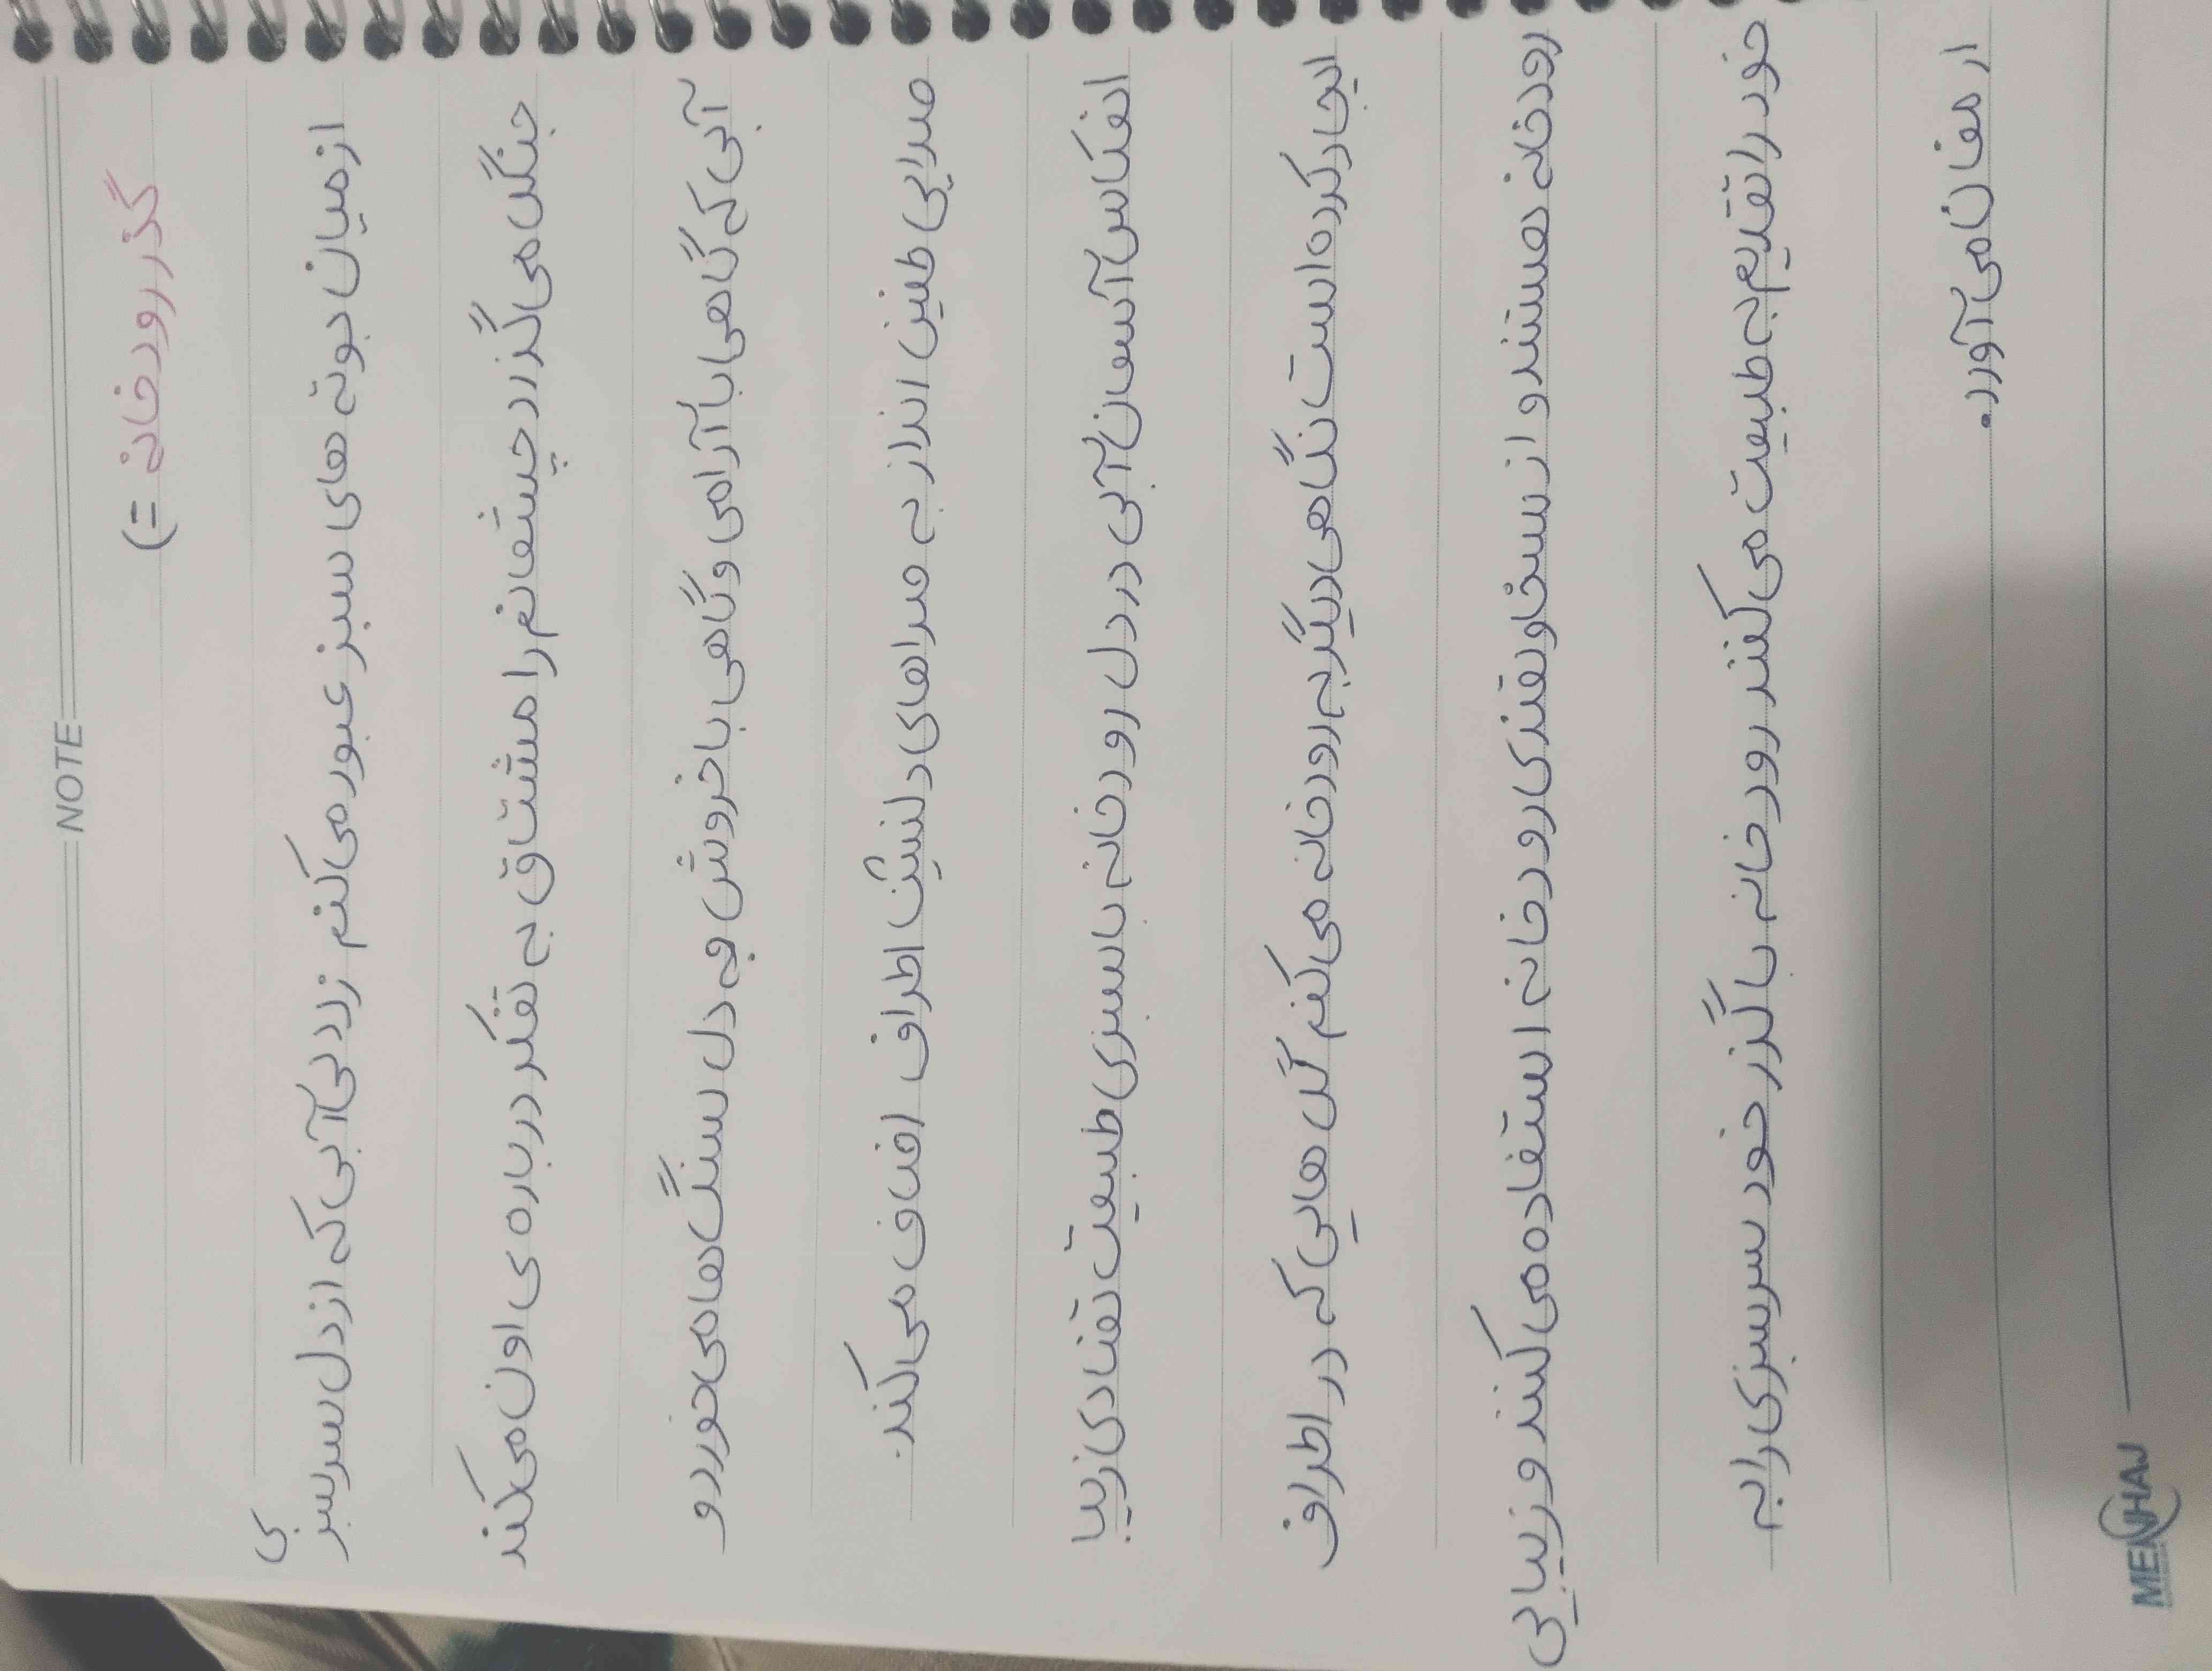 NOTE
گذر رودخانه =)
از میان بوته های سبز عبور می کنم زلالی آبی که از دل سرسبزی
جنگل می گذرد چشمانم را مشتاق به تفکر درباره ی اون می کند
آبی که گاهی با آرامی و گاهی با خروش به دل سنگ ها می خورد و
صدایی طنین انداز به صداهای دلنشین اطراف اضاف می کند.
انعکاس آسمان آبی در دل رودخانه با سبزی طبیعت تضادی زیبا
ایجاد کرده است نگاهی دیگر به رودخانه می کنم گل هایی که در اطراف
رودخانه هستند و از سخاوتمندی رودخانه استفاده می کنند و زیبایی
خود را تقدیم به طبیعت می کنند رودخانه با گذر خود سرسبزی را به
ارمغان می آورد.
MENHAJ